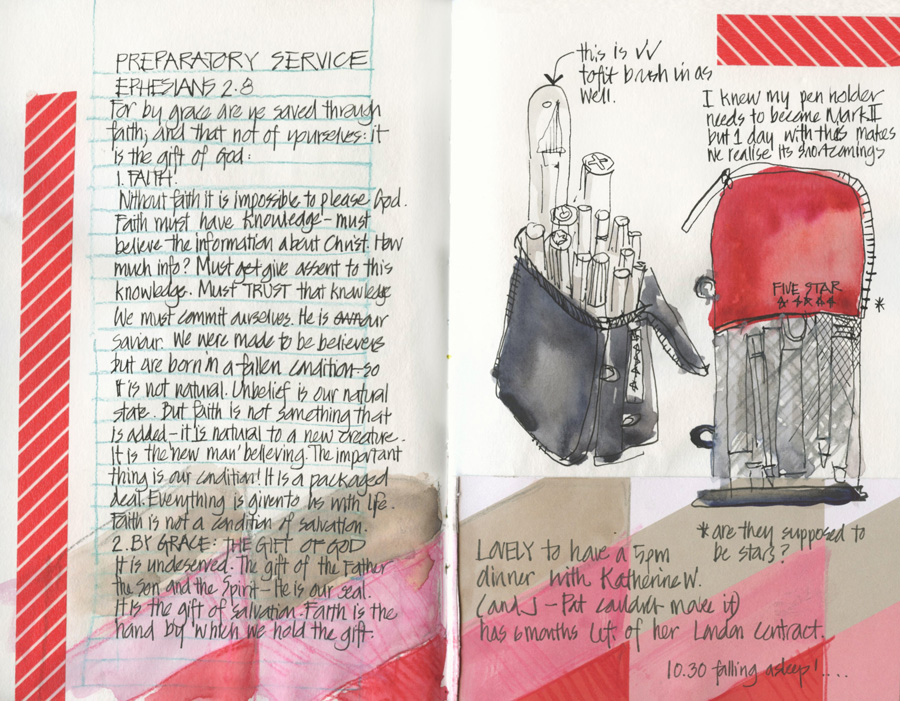 PREPARATORY SERVICE
EPHESIANS 2.8
For by grace are ye saved through
faith; and that not of yourselves: it
is the gift of God:
1. FAITH.
Without faith it is impossible to please God.
Faith must have knowledge - must
believe the information about Christ. How
much info? Must give assent to this
knowledge. Must TRUST that knowledge
We must commit ourselves. He is our
saviour. We were made to be believers
but are born in a fallen condition - so
it is not natural. Unbelief is our natural
state. But faith is not something that
is added - it is natural to a new creature.
It is the 'new man' believing. The important
thing is our condition! It is a packaged
deal. Everything is given to us with life.
Faith is not a condition of salvation.
2. BY GRACE: THE GIFT OF GOD
It is undeserved. The gift of the Father
the Son and the Spirit - He is our seal.
It is the gift of salvation. Faith is the
hand by which we hold the gift.
this is √√
to fit brush in as
well.
I knew my pen holder
needs to become Mark II
but 1 day with this makes
me realise its shortcomings
FIVE STAR
*
* are they supposed to
be stars?
LOVELY to have a 5pm
dinner with Katherine W.
(and J - Pat couldn't make it)
has 6 months left of her London contract.
10.30 falling asleep!....